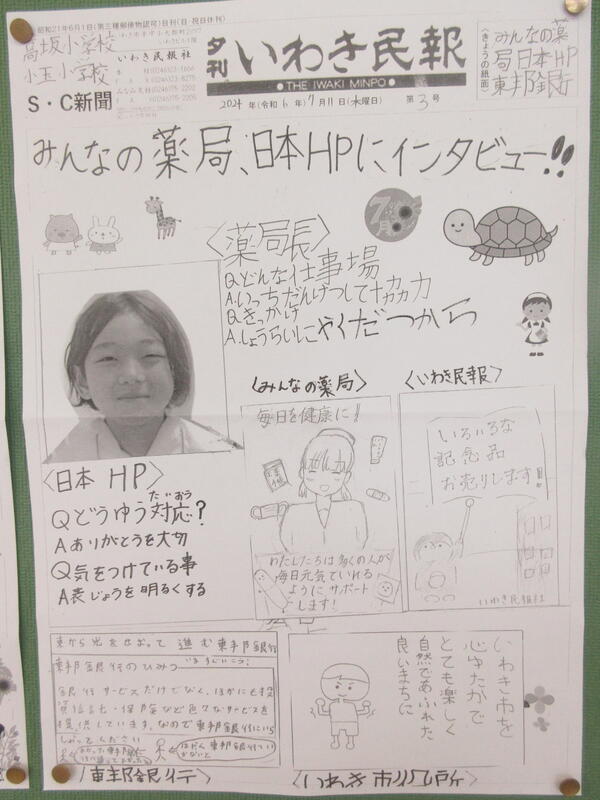 昭和21年6月1日(第三種郵便物認可)日刊(日・祝日休刊)
高坂小学校
小玉小学校
S・C新聞
いわき民報社
夕刊 いわき民報
● THE IWAKI MINPO ●
2024年(令和6年)7月11日(木曜日) 第3号
〈きょうの紙面〉
みんなの薬
局日本HP
東邦銀行
みんなの薬局、日本HPにインタビュー!!
7月
〈薬局長〉
Q.どんな仕事場
A.いっちだんけつして
Q.きっかけ
A.しょうらいにやくだつから
〈日本 HP〉
Qどうゆう対応?
たいおう
Aありがとうを大切
Q気をつけている事
A表じょうを明るくする
〈みんなの薬局〉
毎日を健康に!
わたしたちは多くの人が
毎日元気でいれる
ようにサポート
します!
〈いわき民報〉
いろいろな
記念品
お売りします!
いわき民報社
東から光をはなって 進む東邦銀行
東邦銀行のひみつ
銀行サービスだけでなく、ほかにも
色々なサービスを
提供しています。なので東邦銀行にいら
しゃってください
〈東邦銀行〉
いわき市を
心ゆたかで
とても楽しく
自然であふれた
良いまちに
〈いわき市役所〉